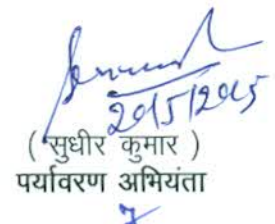 20/5/2015
( सुधीर कुमार )
पर्यावरण अभियंता